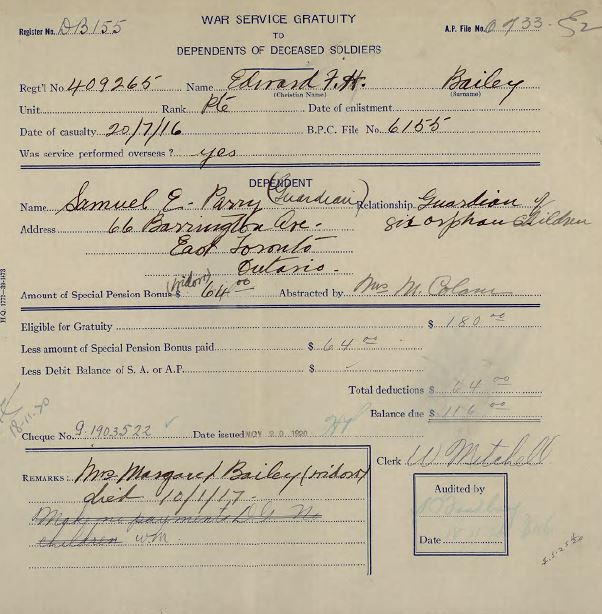 WAR SERVICE GRATUITY
Register No. DB155
TO
A.P. File No.
DEPENDENTS OF DECEASED SOLDIERS
Regt'l No. 409265 Name Edward F. H. Bailey
(Christian Name) (Surname)
Unit Rank Pte Date of enlistment
Date of casualty 20/7/16 B.P.C. File No. 6155
Was service performed overseas? yes
DEPENDENT
Name Samuel E. Parry (Guardian) Relationship Guardian of
Address 66 Barrington Ave. six orphan children
East Toronto
Ontario.
(widow)
Amount of Special Pension Bonus $ 64 00 Abstracted by Mrs M.
H.Q. 1772-39-1473
Eligible for Gratuity $ 180 00
Less amount of Special Pension Bonus paid $ 64 00
Less Debit Balance of S. A. or A.P. $
Total deductions $ 64 00
Balance due $ 116 00
18-11-20
Cheque No. 9.1903522 Date issued NOV 20 1920
Clerk W Mitchell
REMARKS: Mrs Margaret Bailey (widow)
died 10/1/17.
Make no payments No
children wm
Audited by
Date